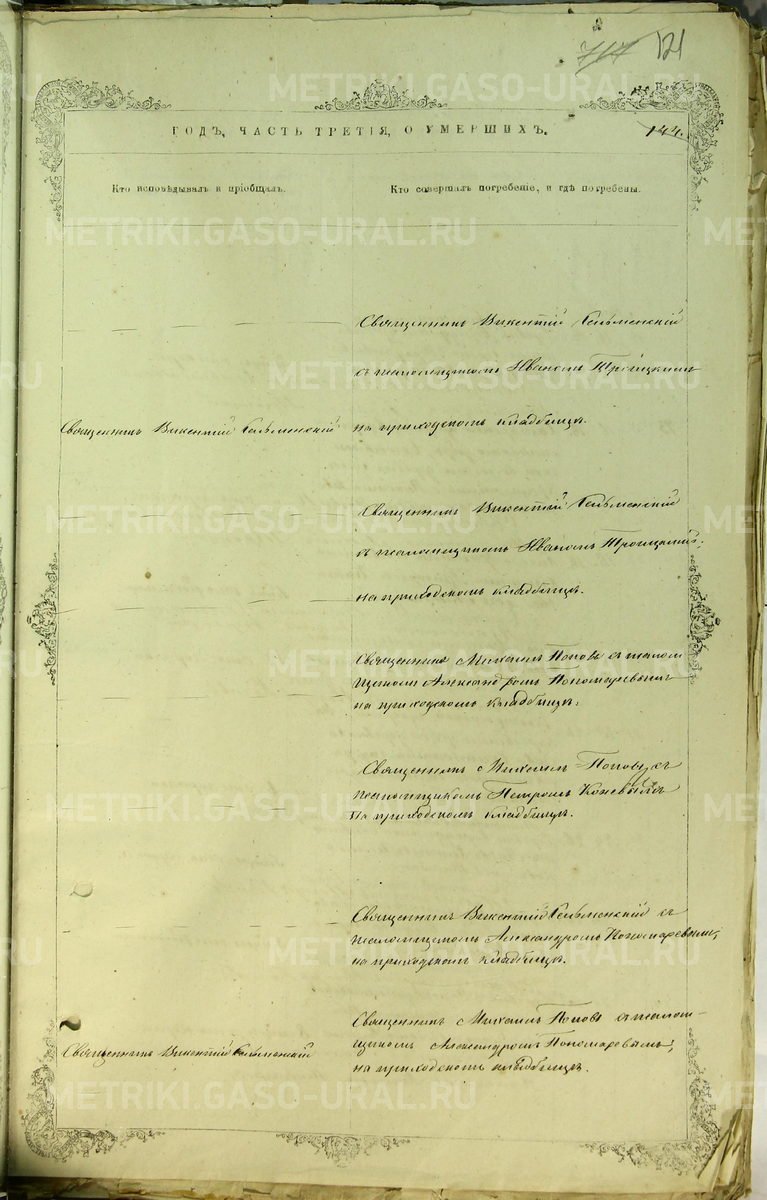 121
ГОДЪ, ЧАСТЬ ТРЕТІЯ, О УМЕРШИХЪ.
144.
Кто исповѣдывалъ и пріобщалъ.
Кто совершалъ погребеніе, и гдѣ погребены.
Священникъ Викентій
съ псаломщикомъ Иваномъ Троицкимъ
Священникъ Викентій
на приходскомъ кладбищѣ.
Священникъ Викентій
съ псаломщикомъ Иваномъ Троицкимъ;
на приходскомъ кладбищѣ.
Священникъ Михаилъ Поповъ съ псалом
щикомъ Александромъ Пономаревымъ
на приходскомъ кладбищѣ.
Священникъ Михаилъ Поповъ съ
псаломщикомъ Петромъ
на приходскомъ кладбищѣ.
Священникъ Викентій съ
псаломщикомъ Александромъ Пономаревымъ,
на приходскомъ кладбищѣ.
Священникъ Михаилъ Поповъ съ псалом-
щикомъ Александромъ Пономаревымъ,
Священникъ Викентій
на приходскомъ кладбищѣ.
METRIKI.GASO-URAL.RU